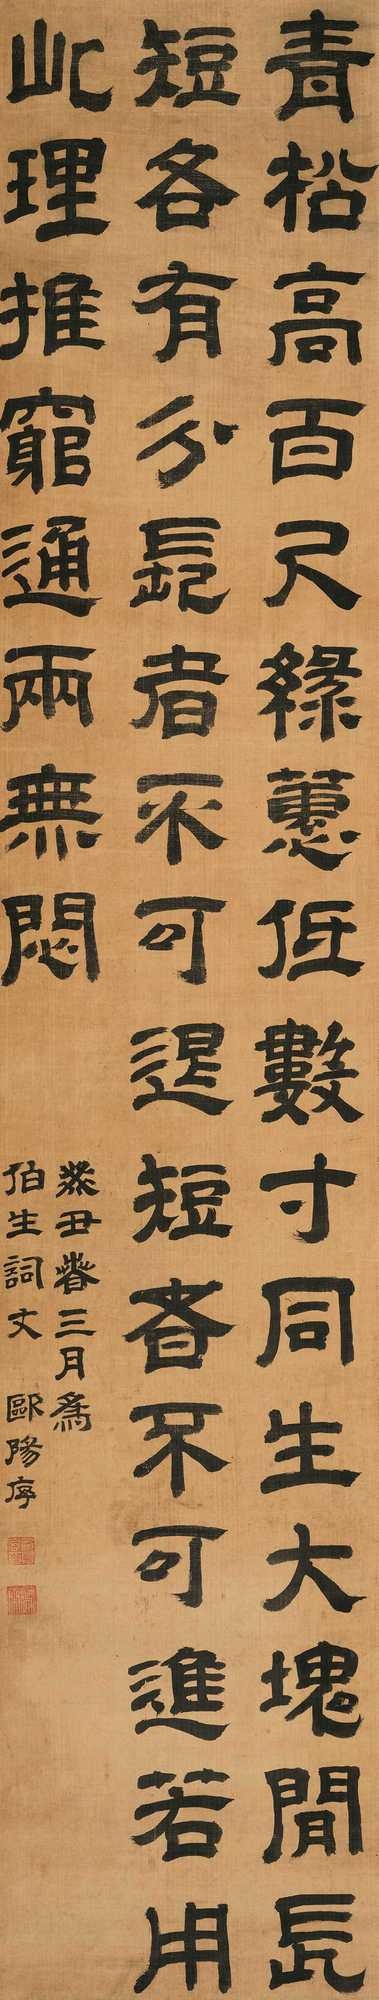 青松高百尺綠蕙低數寸同生大塊閒長
短各有分長者不可退短者不可進若用
此理推窮通兩無悶
癸丑暮春三月為
伯生詞丈 歐陽序